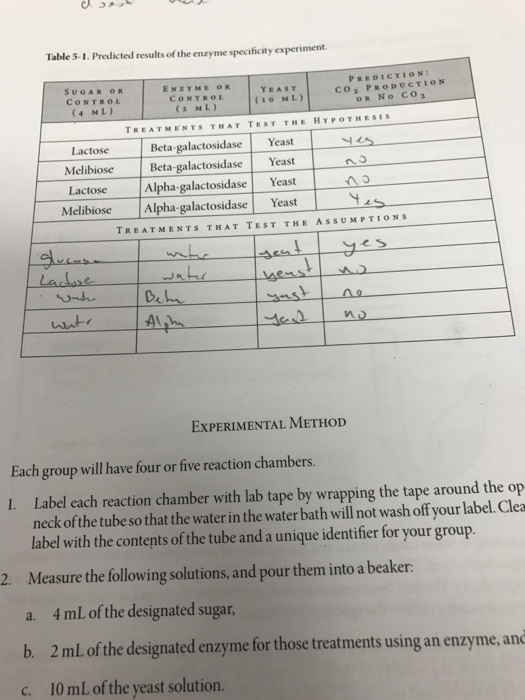 Table 5-1. Predicted results of the enzyme specificity experiment.
SUGAR OR CONTROL (4 ML) ENZYME OR CONTROL (2 ML) YEAST (10 ML) PREDICTION: CO2 PRODUCTION OR NO CO2
TREATMENTS THAT TEST THE HYPOTHESIS
Lactose Beta-galactosidase Yeast yes
Melibiose Beta-galactosidase Yeast no
Lactose Alpha-galactosidase Yeast no
Melibiose Alpha-galactosidase Yeast Yes
TREATMENTS THAT TEST THE ASSUMPTIONS
glucose water yeast yes
Lactose water yeast no
water Beta yeast no
water Alpha yeast no
EXPERIMENTAL METHOD
Each group will have four or five reaction chambers.
1. Label each reaction chamber with lab tape by wrapping the tape around the op
neck of the tube so that the water in the water bath will not wash off your label. Clea
label with the contents of the tube and a unique identifier for your group.
2. Measure the following solutions, and pour them into a beaker:
a. 4 mL of the designated sugar,
b. 2 mL of the designated enzyme for those treatments using an enzyme, and
c. 10 mL of the yeast solution.